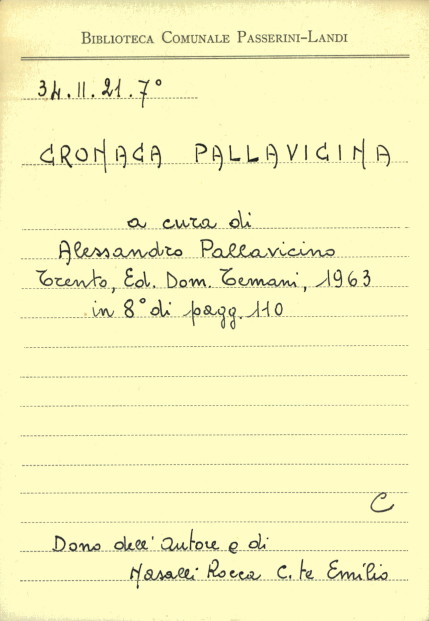 BIBLIOTECA COMUNALE PASSERINI-LANDI
34.II.21.7°
CRONACA PALLAVICINA
a cura di
Alessandro Pallavicino
Trento, Ed. Dom. Temani, 1963
in 8° di pagg. 110
C
Dono dell'autore e di
Nasalli Rocca C.te Emilio